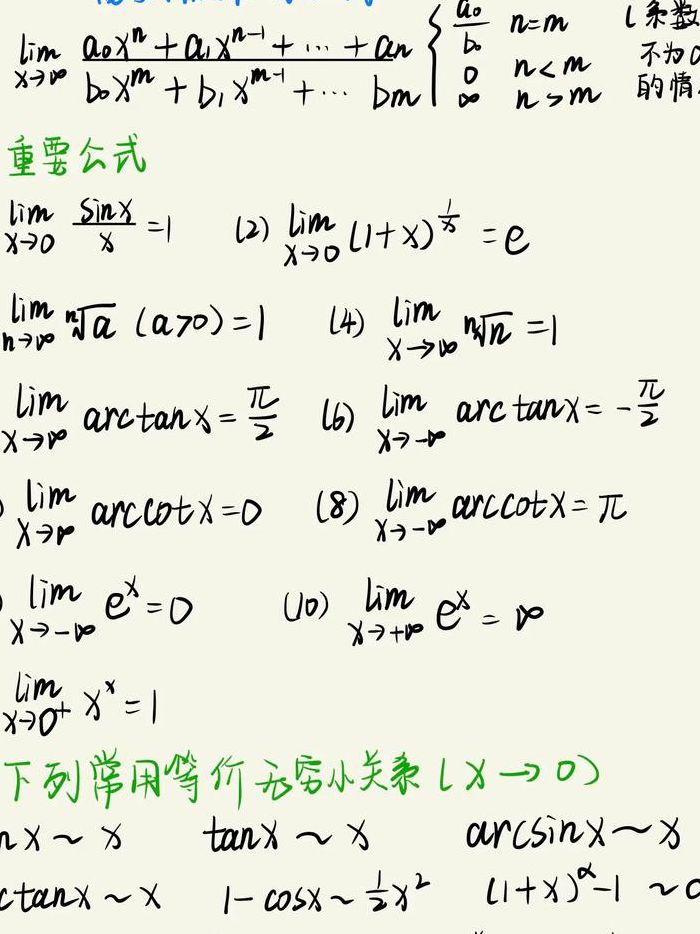 lim x→∞ (a₀xⁿ + a₁xⁿ⁻¹ + ⋯ + aₙ) / (b₀xᵐ + b₁xᵐ⁻¹ + ⋯ bₘ) { a₀/b₀ n=m
0 n<m
∞ n>m
(系数
不为0
的情
重要公式
lim x→0 sinx/x =1 (2) lim x→0 (1+x)^(1/x) = e
lim n→∞ ⁿ√a (a>0)=1 (4) lim x→∞ ⁿ√n =1
lim x→∞ arctanx = π/2 (6) lim x→-∞ arctanx = -π/2
) lim x→∞ arccotx=0 (8) lim x→-∞ arccotx= π
) lim x→-∞ eˣ=0 (10) lim x→+∞ eˣ = ∞
lim x→0⁺ xˣ =1
下列常用等价无穷小关系(x→0)
nx~x tanx~x arcsinx~x
ctanx~x 1-cosx~½x² (1+x)^α-1 ~